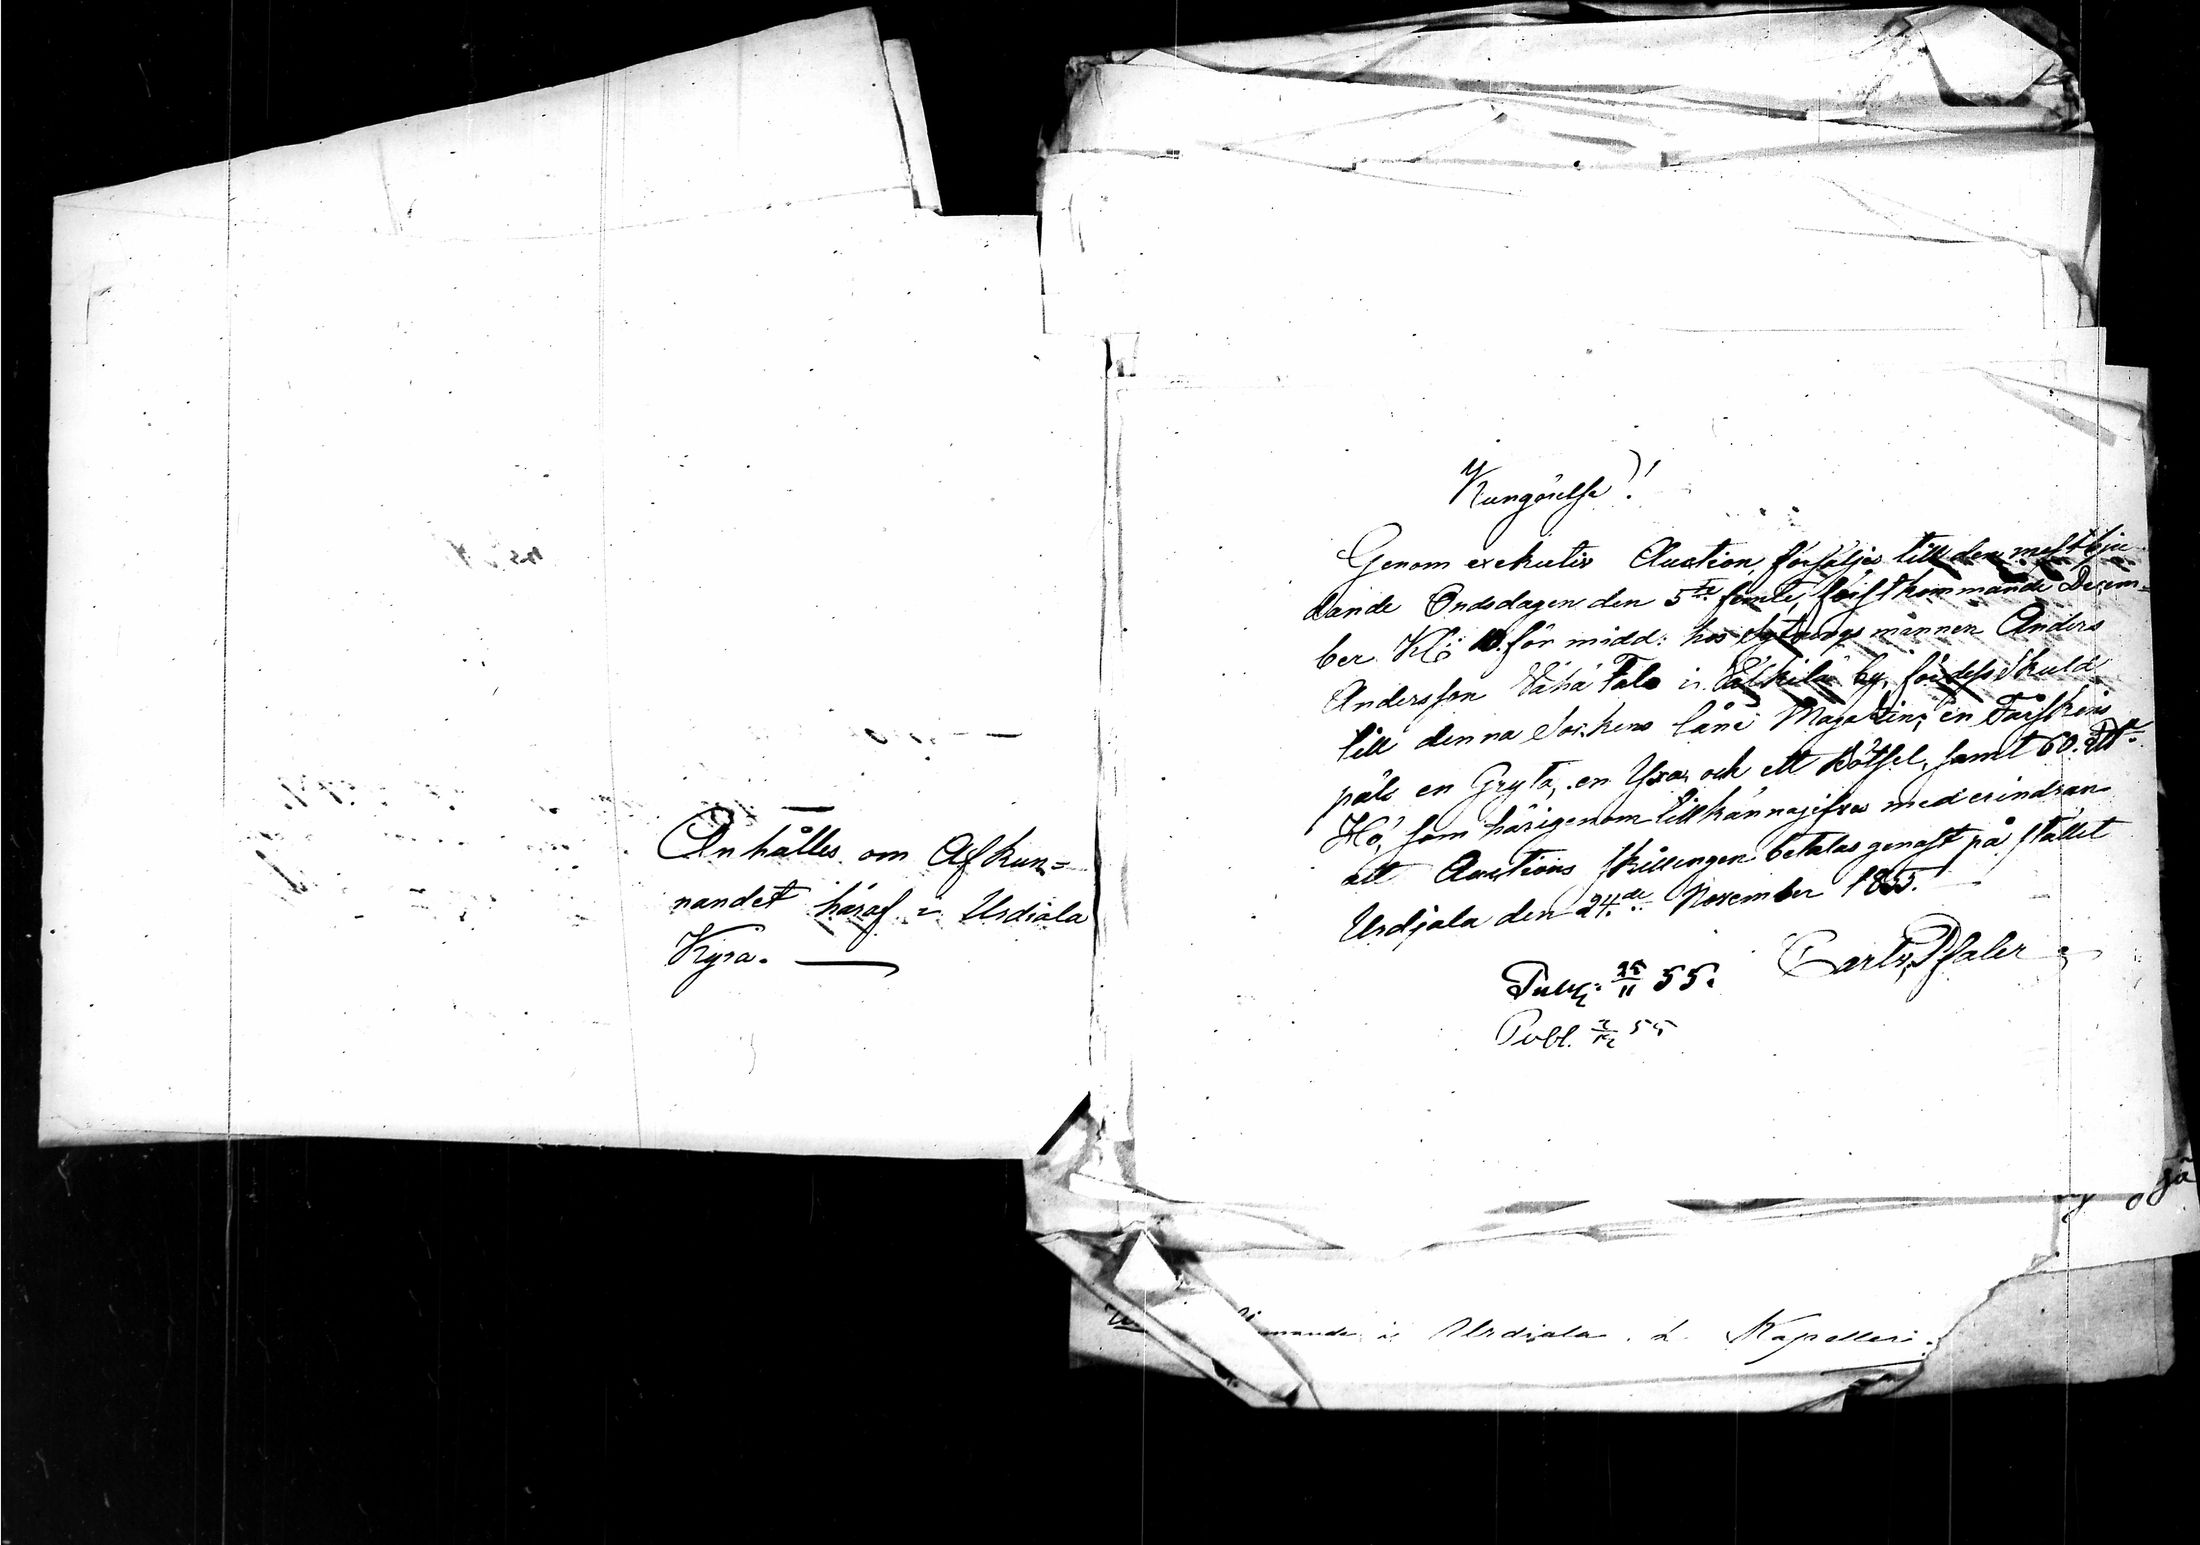 Anhålles om Afkun=
nandet häraf i Urdiala
Kyra.
Kungörelse!
Genom exekutiv Auction, försäljes till den mestbju
dande Onsdagen den 5te femte, förstkommande Decem=
ber Kl: 10 för midd: hos Sytningsmannen Anders
Andersson Vähä Talo i by, för dess skuld
till denna Sockens låne Magasin; en Fårskins
päls en Gryta, en Yxa, och ett Bötsel, samt 60. 
Hö, som härigenom tillkännagifves med erindran
att Auctions skillingen betalas genast på stället
Urdjala den 24de November 1855.
Carl v. Pfaler
Publ: 25/11 55.
Publ. 2/12 55
mande i Urdiala . Kapelleri